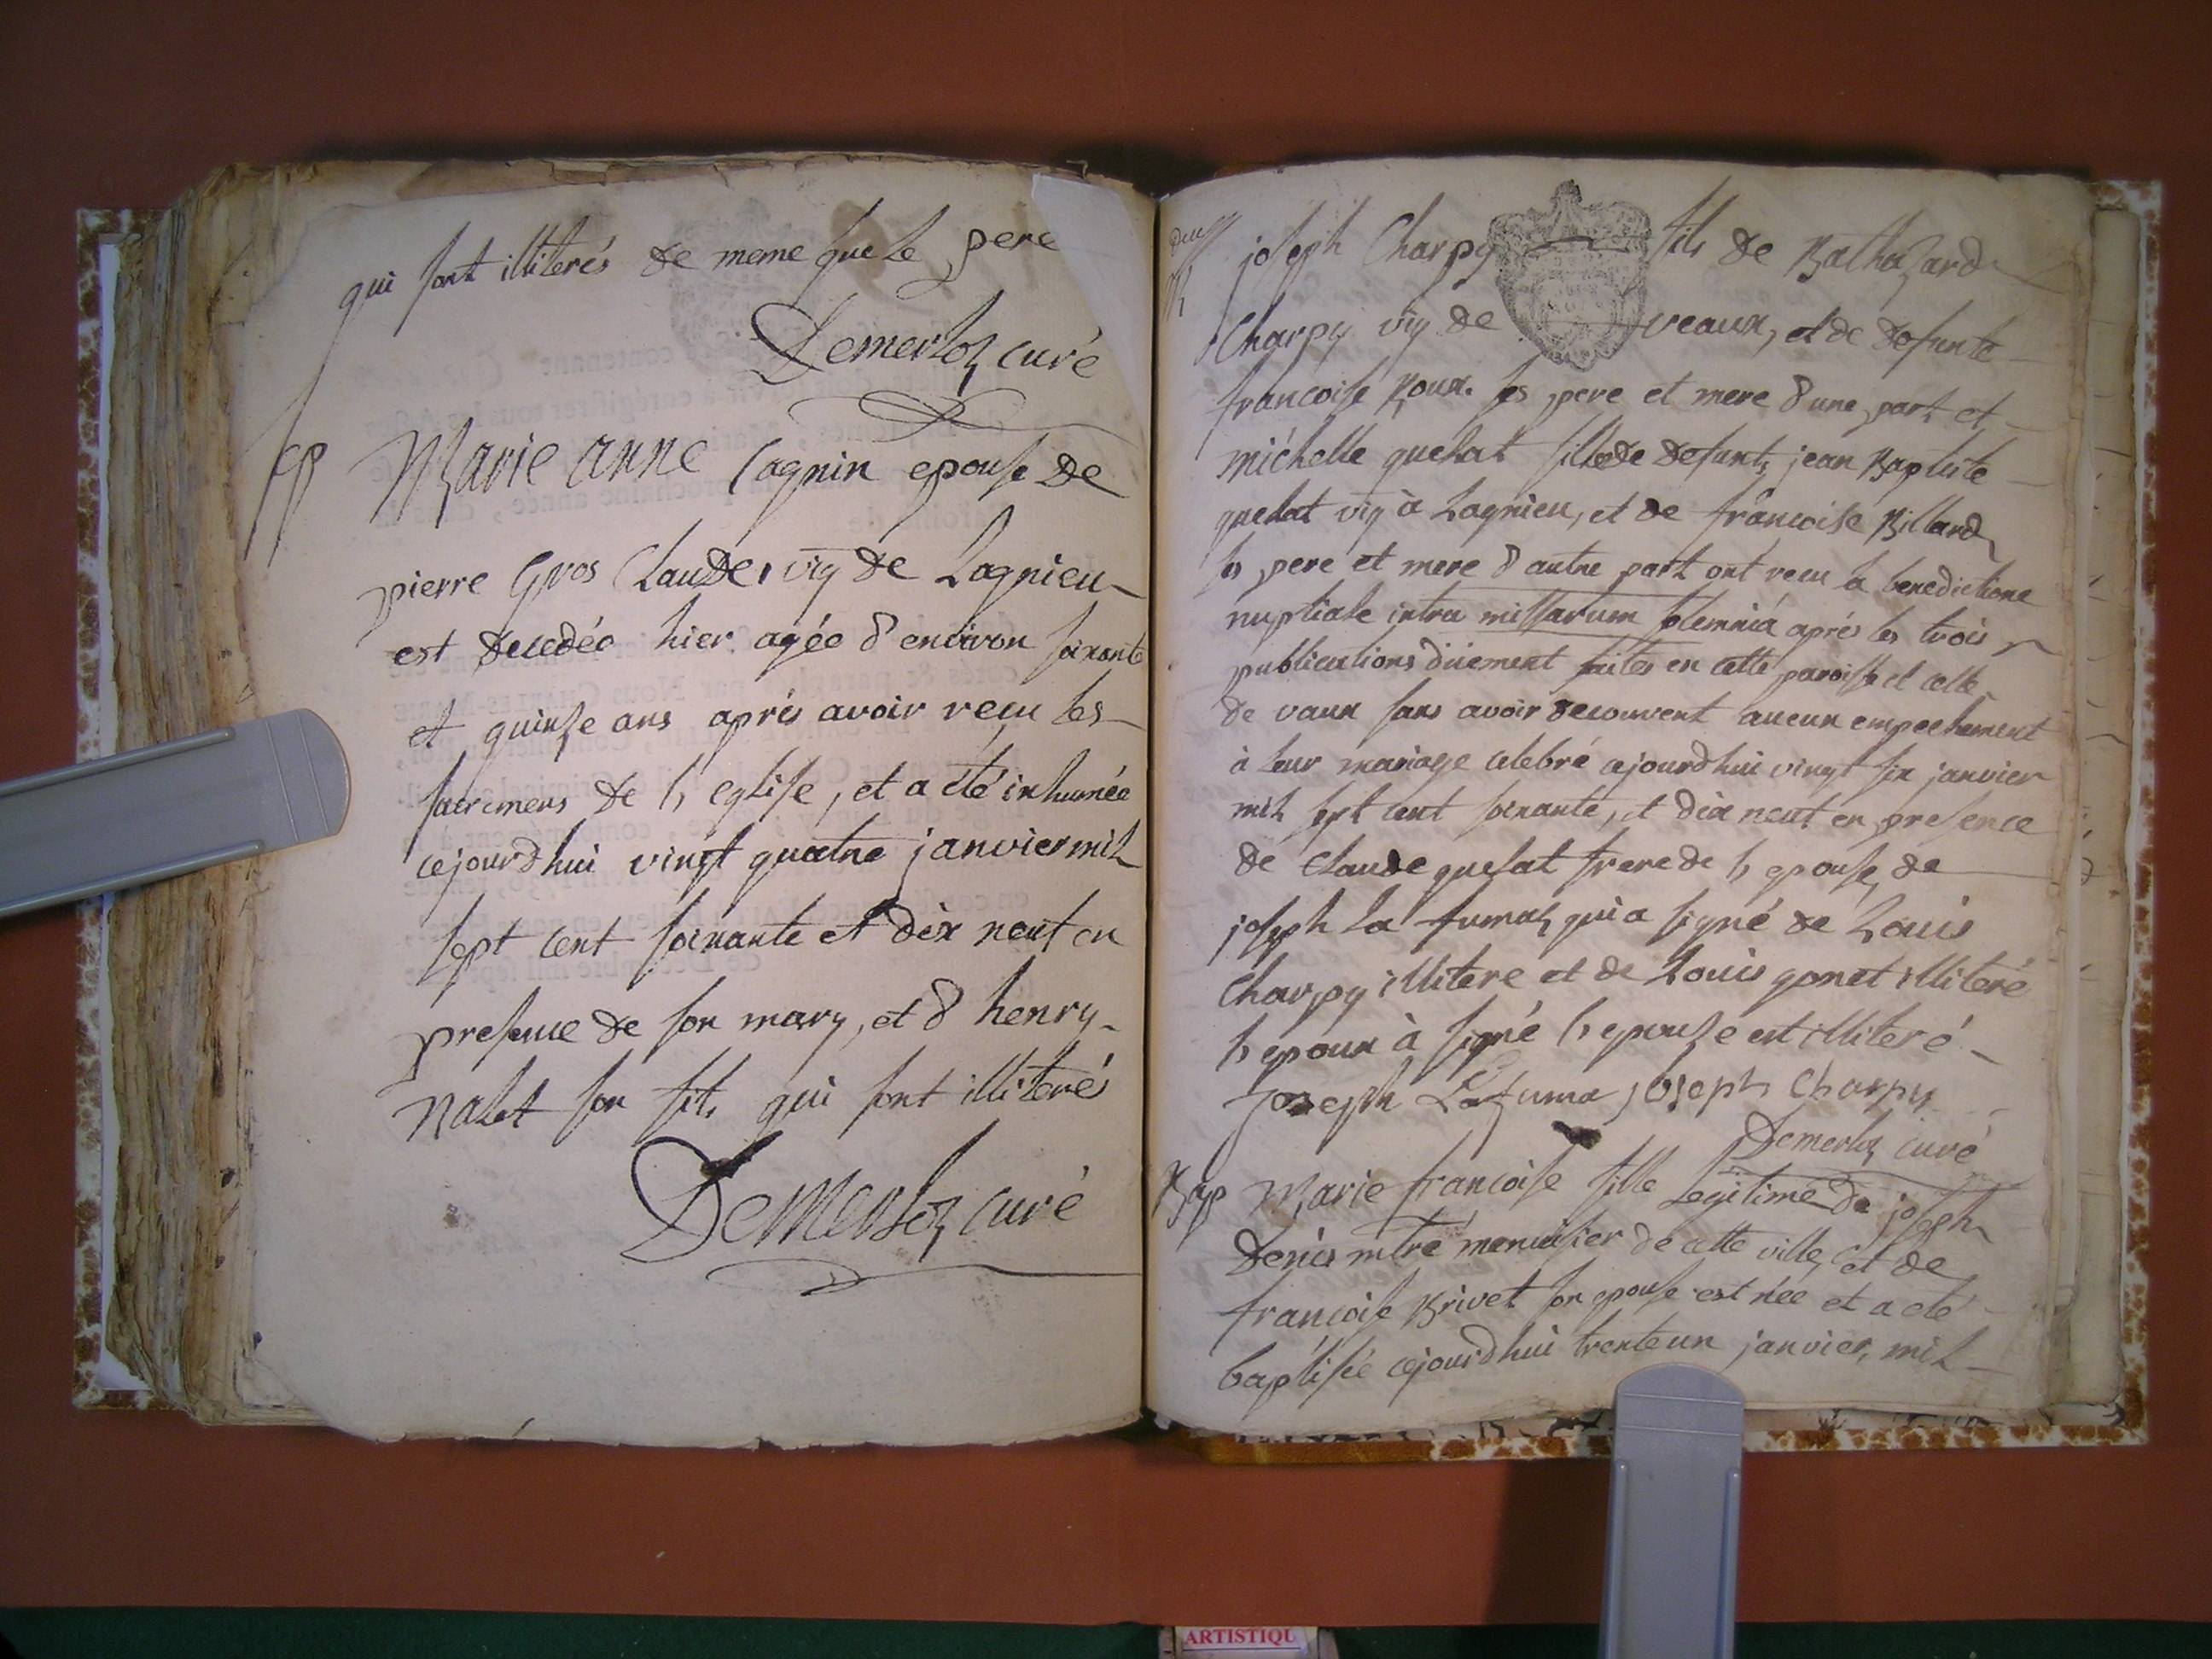 qui sont illiterés de meme que le pere
Demerloz curé
sep
Marie anne Cagnin epouse de
pierre Gros Claude, vig de Lagnieu
est decedée hier agée d'environ soixante
et quinze ans aprés avoir reçu les
sacremens de l'eglise, et a eté inhumée
cejourdhui vingt quatre janvier mil
sept cent soixante et dix neuf en
presence de son mary, et d'henry
nalet son fils qui sont illiterés
Demerloz curé
joseph Charpy fils de Balthazard
Charpy vig de veaux, et de defunte
francoise Roux ses pere et mere d'une part et
michelle quelat fille de defunts jean Baptiste
quelat vig à Lagnieu, et de francoise Billard
ses pere et mere d'autre part ont recu la benedictione
nuptiale intra missarum solemnia aprés les trois
publications düement faites en cette paroisse et celle
de vaux sans avoir decouvert aucun empechement
à leur mariage celebré cejourdhui vingt six janvier
mil sept cent soixante, et dix neuf en presence
de Claude quelat frere de l'epouse, de
joseph La fumaz qui a signé de Louis
Charpy illitere et de Louis gonet illiteré
l'epoux à signé l'epouse est illiteré
Joseph Lafuma joseph Charpy
Demerloz curé
Bap Marie francoise fille Legitime de joseph
Denis mtre menuisier de cette ville, et de
francoise Brivet son epouse est née et a eté
baptisée cejourdhui trente un janvier, mil
ARTISTIQU